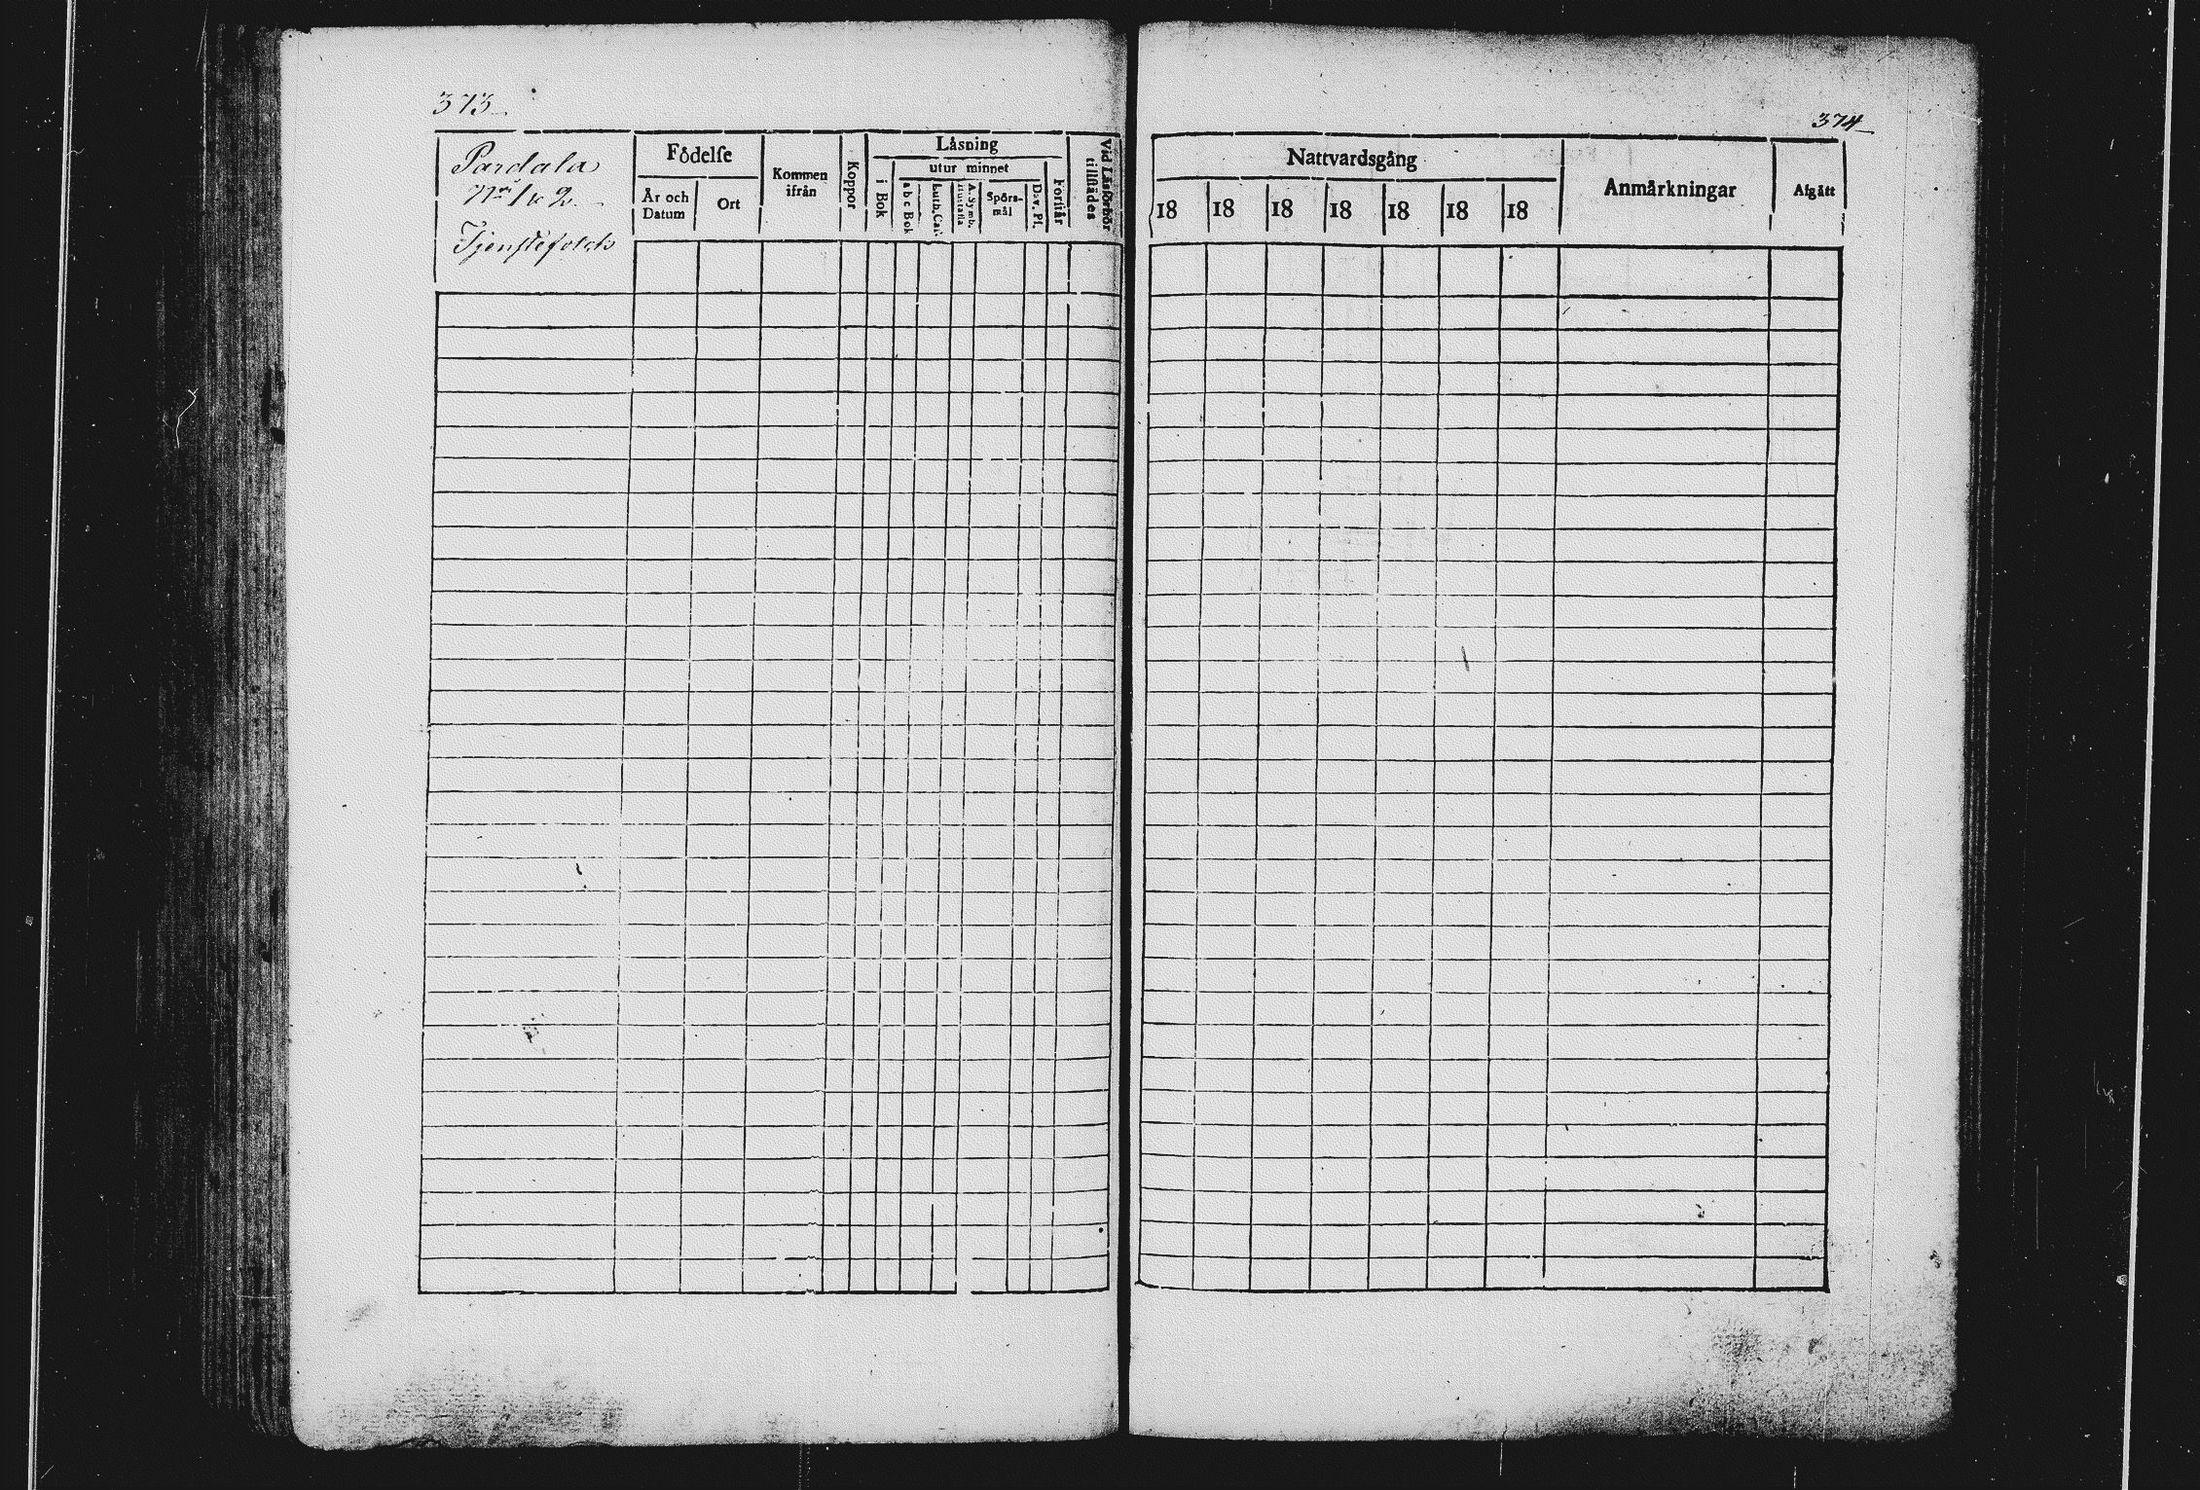 373
Pardala
No 1 & 2.
Tjenstefolck
Födelse
År och
Datum
Ort
Kommen
ifrån
Koppor
Läsning
i Bok
utur minnet
a b c Bok
Luth. Cat.
A. Symb.
Spörs-
mål
Dav. Ps.
Förstår
Vid Läsförhör
tillstädes
374
Nattvardsgång
18 18 18 18 18 18 18
Anmärkningar
Afgått